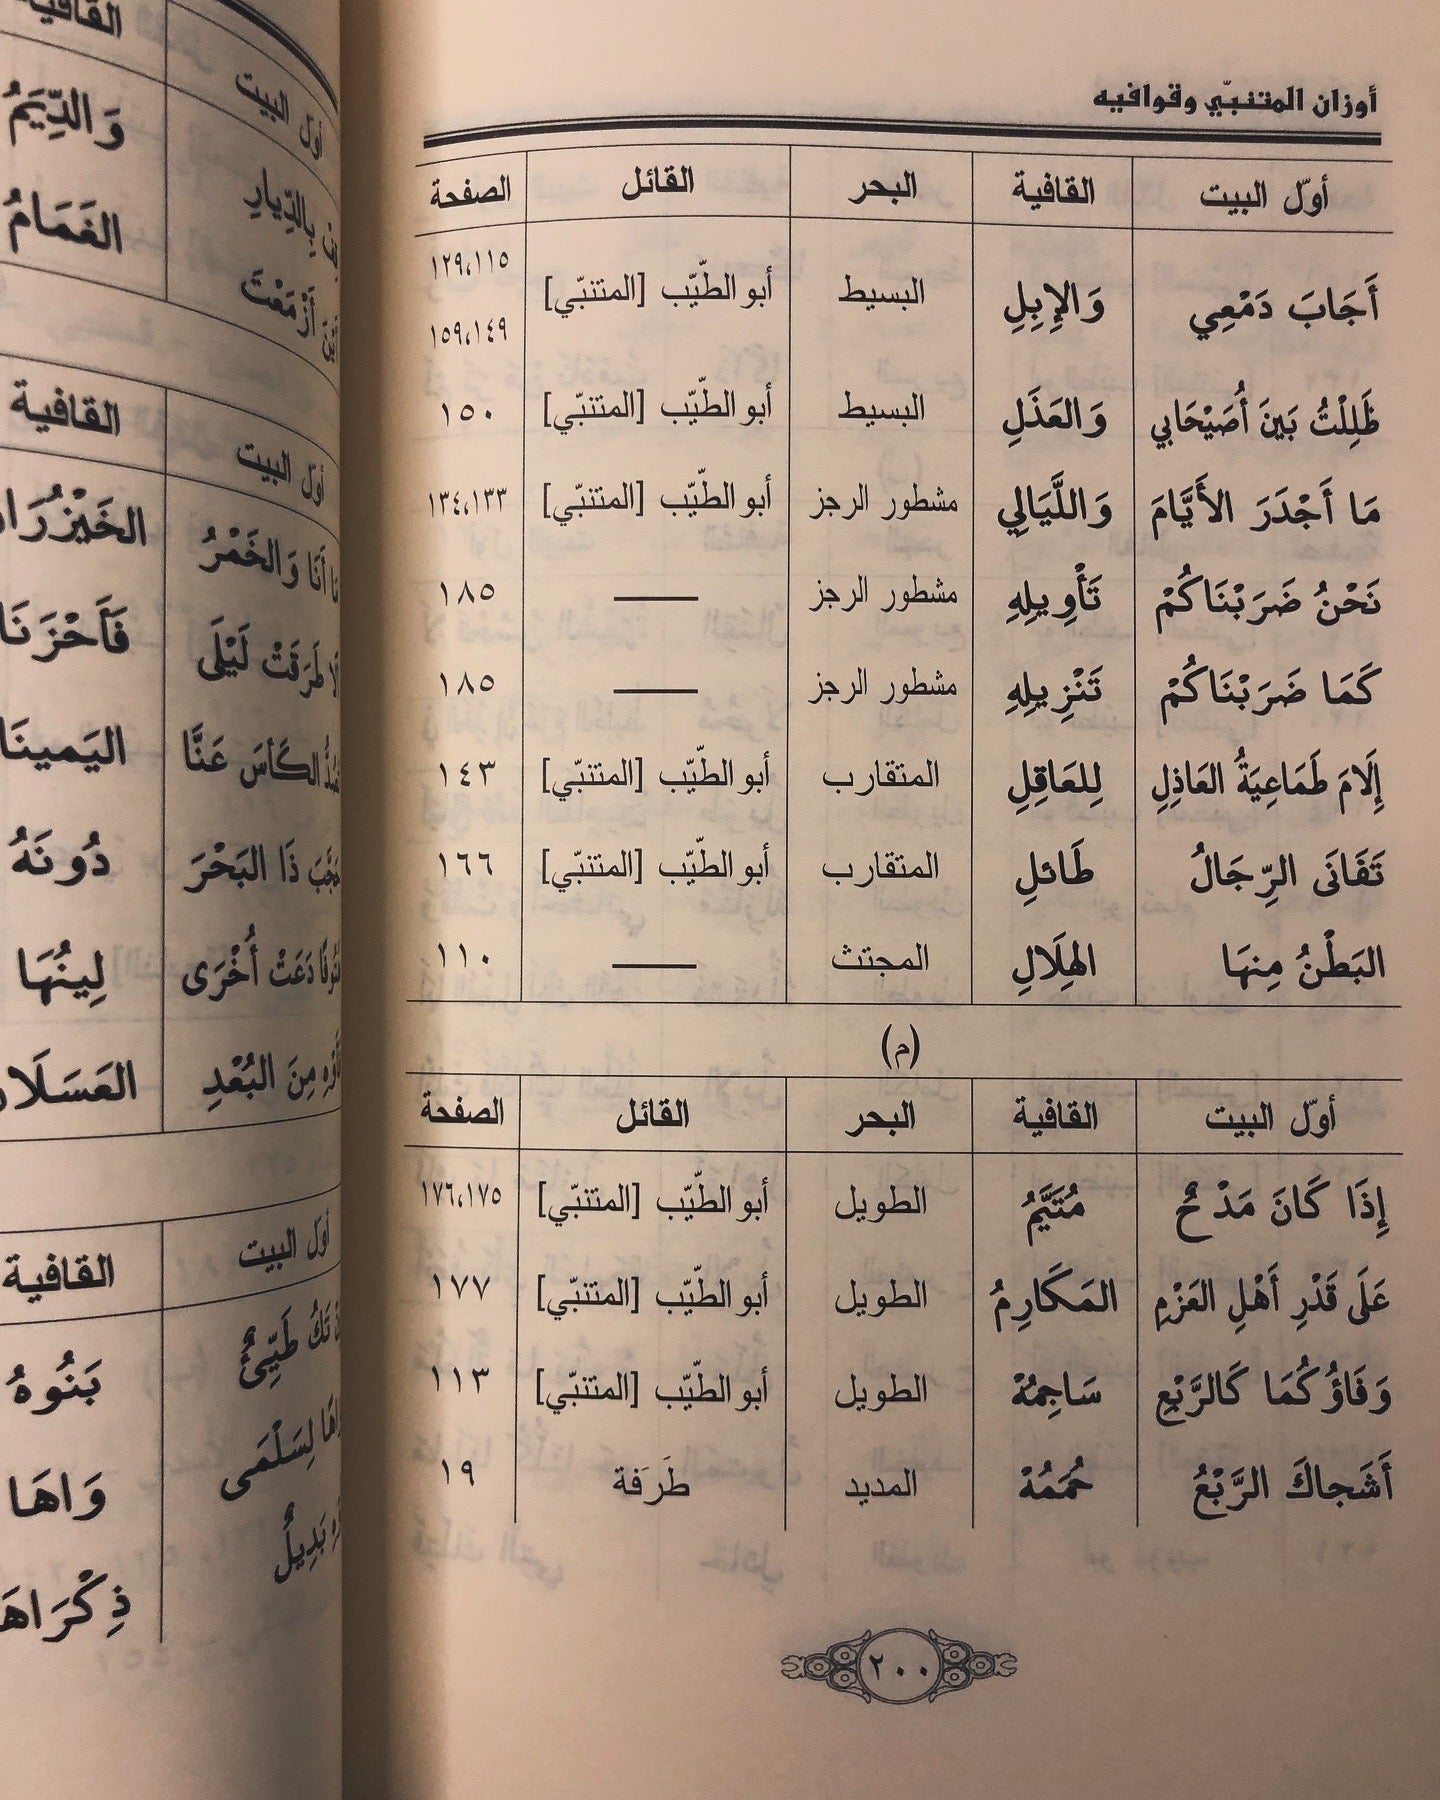 أوزان المتنبّي وقوافيه
أوّل البيت القافية البحر القائل الصفحة
أَجَابَ دَمْعِي وَالإِبِلِ البسيط أبو الطّيّب [المتنبّي] ١٢٩،١١٥
١٥٩،١٤٩
ظَلِلْتُ بَينَ أُصَيْحَابي وَالعَذَلِ البسيط أبو الطّيّب [المتنبّي] ١٥٠
مَا أَجْدَرَ الأَيَّامَ وَاللَّيَالِي مشطور الرجز أبو الطّيّب [المتنبّي] ١٣٤،١٣٣
نَحْنُ ضَرَبْنَاكُمْ تَأْوِيلِهِ مشطور الرجز —— ١٨٥
كَمَا ضَرَبْنَاكُمْ تَنْزِيلِهِ مشطور الرجز —— ١٨٥
إِلَامَ طَمَاعِيَةُ العَاذِلِ لِلعَاقِلِ المتقارب أبو الطّيّب [المتنبّي] ١٤٣
تَفَانَى الرِّجَالُ طَائلِ المتقارب أبو الطّيّب [المتنبّي] ١٦٦
البَطْنُ مِنهَا الهِلَالِ المجتث —— ١١٠
(م)
أوّل البيت القافية البحر القائل الصفحة
إِذَا كَانَ مَدْحٌ مُتَيَّمُ الطويل أبو الطّيّب [المتنبّي] ١٧٦،١٧٥
عَلَى قَدْرِ أَهْلِ العَزْمِ المَكَارِمُ الطويل أبو الطّيّب [المتنبّي] ١٧٧
وَفَاؤُكُمَا كَالرَّبْعِ سَاجِمُهْ الطويل أبو الطّيّب [المتنبّي] ١١٣
أَشَجاكَ الرَّبْعُ حُمَمُهْ المديد طَرَفة ١٩
٢٠٠
القافية
أوّل البيت
وَالدِّيَمُ
بِالدِّيارِ
الغَمَامُ
أَزْمَعْتَ
أوّل البيت القافية
أَنَا وَالخَمْرُ
طَرَقَتْ لَيْلَى فَأَحْزَنَا
الكَأسَ عَنَّا اليَمينَا
ذَا البَحْرَ دُونَهُ
دَعَتْ أُخْرَى لِينُهَا
مِنَ البُعْدِ
أوّل البيت القافية
تَكُ طَيِّئٌ بَنُوهُ
لِسَلْمَى وَاهَا
بَدِيلٌ